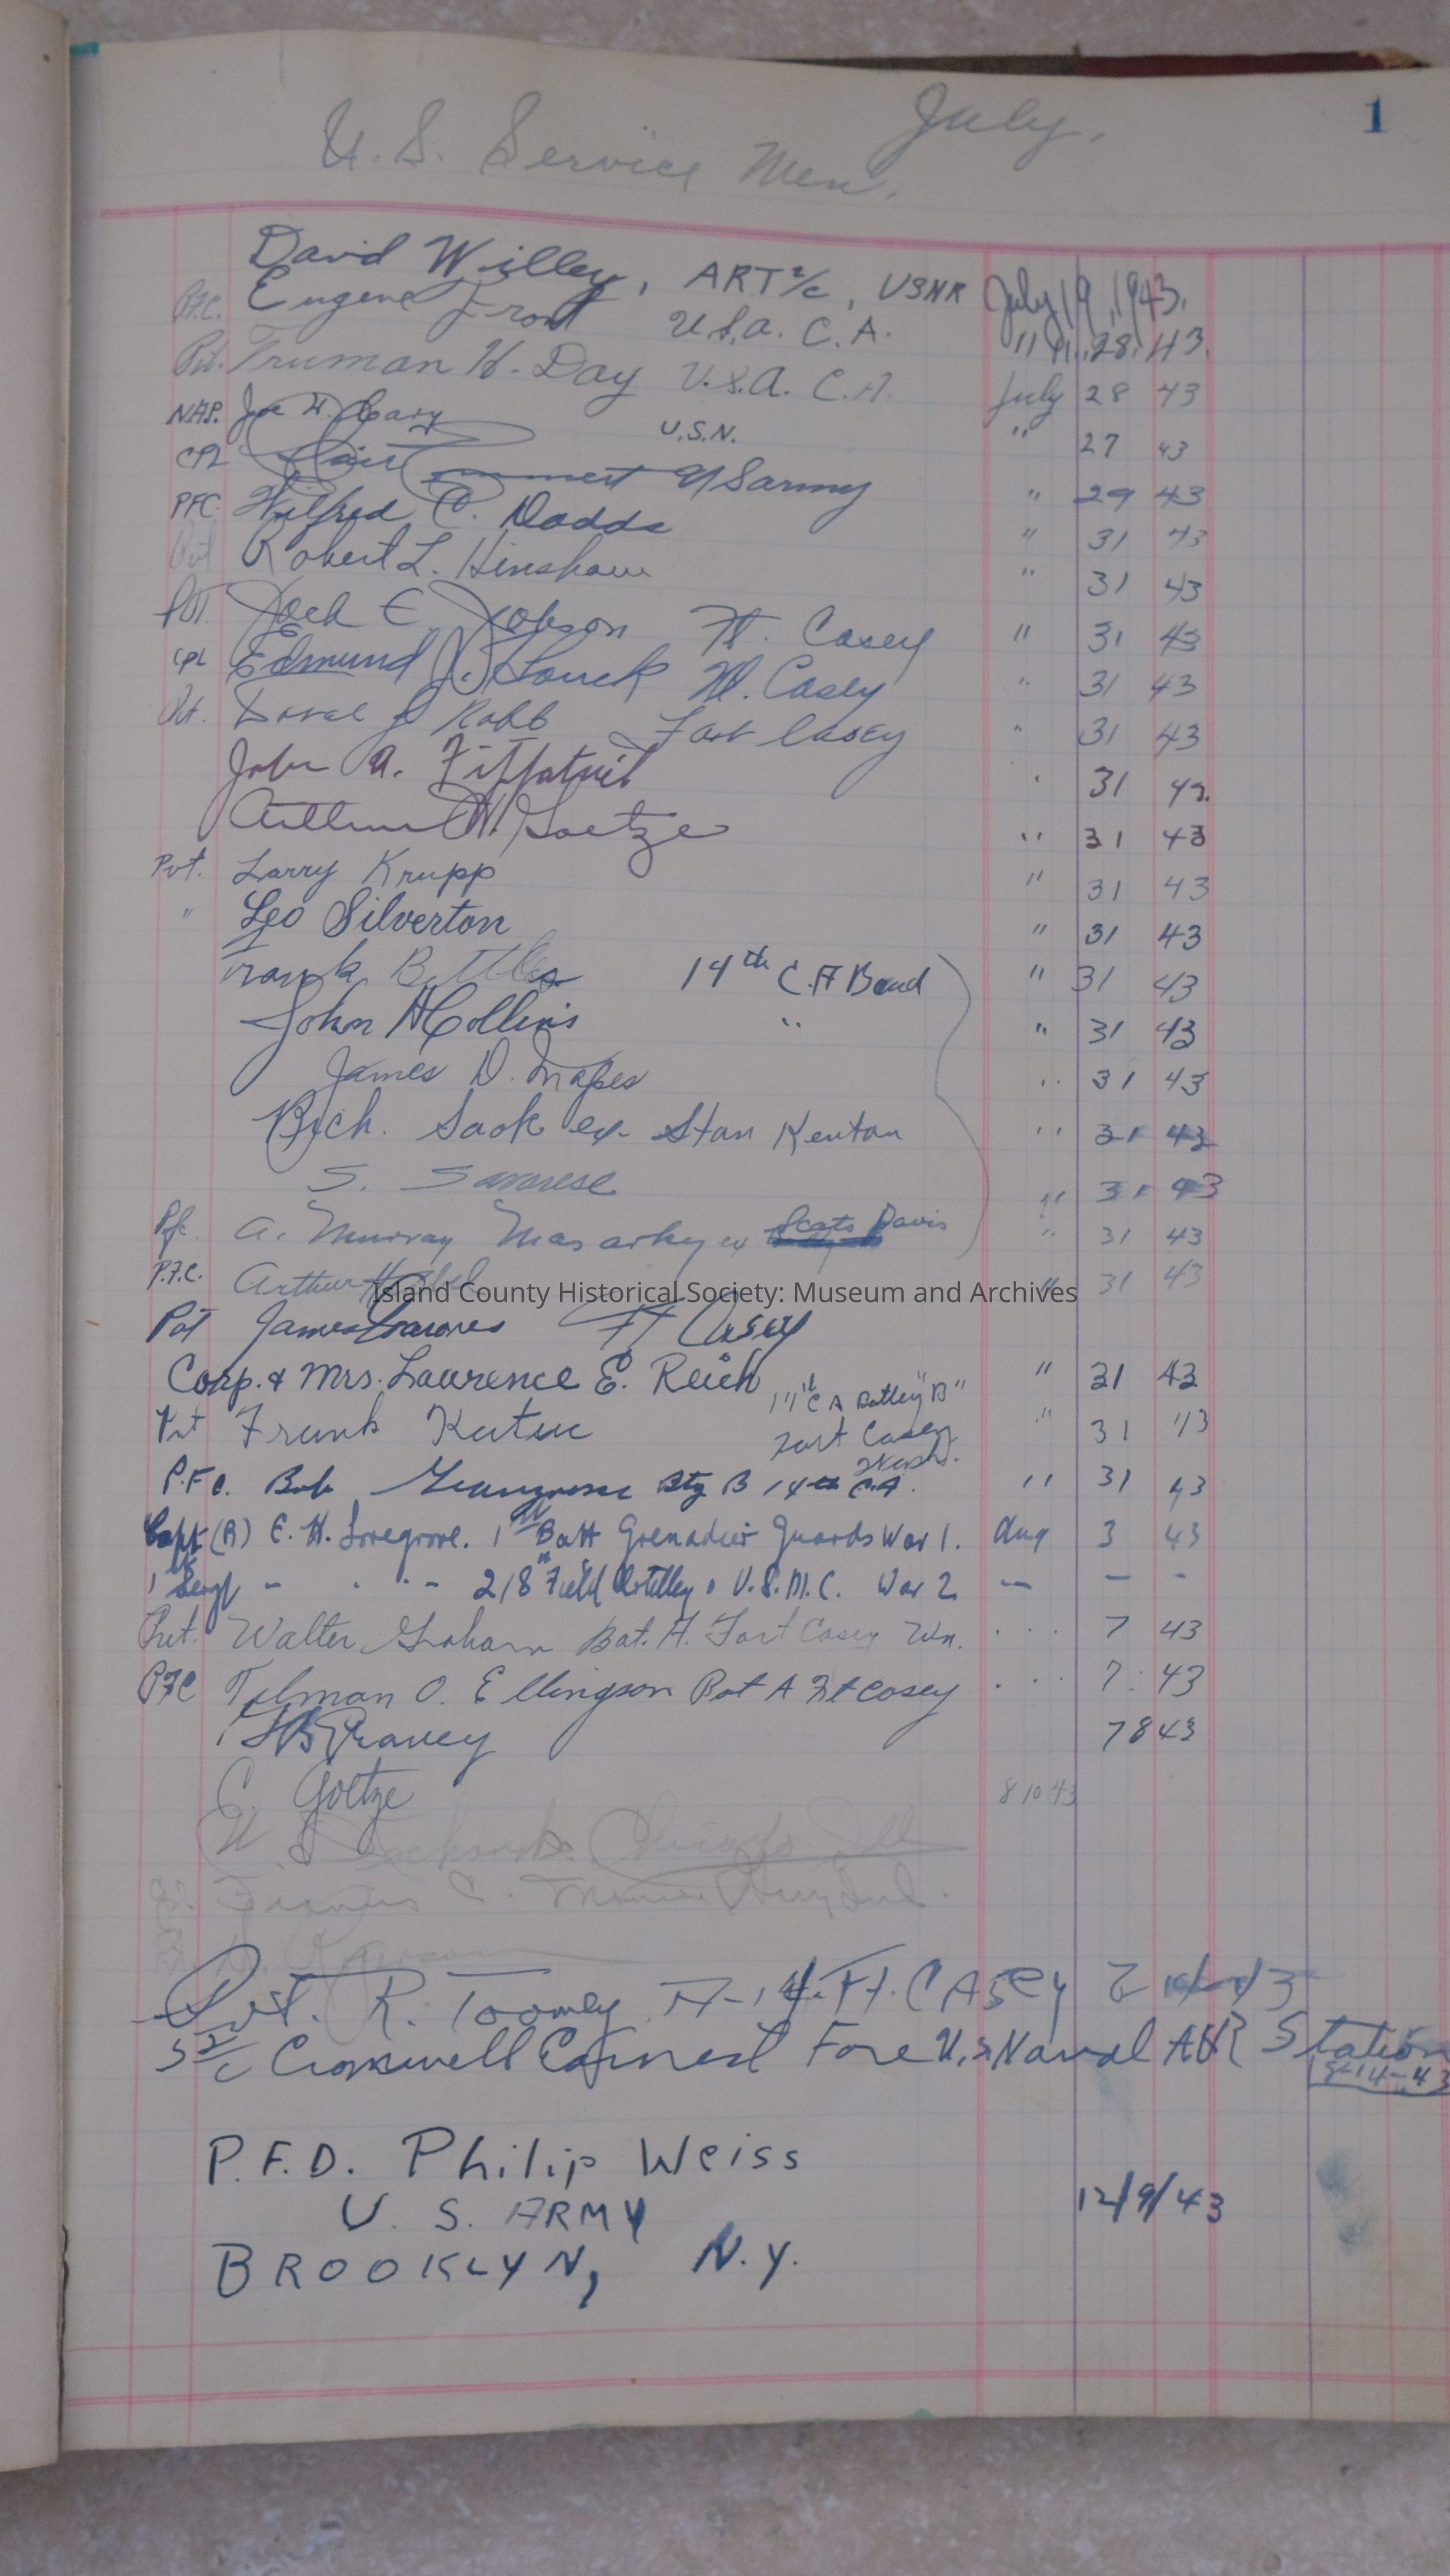 July.
1
U. S. Service Men.
David Willey, ART 2/c, USNR July 19, 1943.
P.F.C. Eugene Front U.S.A. C.A. " " 28, 43.
Pvt. Truman H. Day U.S.A. C.A. July 28 43
NAP. Joe H. Cary U.S.N. " 27 43
CPL US army " 29 43
PFC Wilfred C. Dodds " 31 43
Pvt Robert L. Hinshaw " 31 43
Pvt. Jack E. Jobson Ft. Casey " 31 43
Cpl Edmund J. Houck Ft. Casey " 31 43
Pvt. J Robb Fort Casey " 31 43
John A. " 31 43.
Arthur W. Goetze " 31 43
Pvt. Larry Krupp " 31 43
" Leo Silverton " 31 43
Frank 14th C.A Band " 31 43
John H Collins " " 31 43
James D. Mapes " 31 43
Rich. Sack ex- Stan Kenton " 31 43
S. Savarese " 31 43
Pfc. A. Murray ex Scats Davis " 31 43
P.F.C. Arthur " 31 43
Island County Historical Society: Museum and Archives
Pvt James Ft Casey
Corp. & Mrs. Lawrence E. Reich " 31 43
14th CA Battery "B"
Pvt Frank " 31 43
Fort Casey
Wash.
P.F.C. Bob Btry B 14th C.A. " 31 43
Capt (R) E. H. Lovegrove. 1st Batt Grenadier Guards War 1. Aug 3 43
1st Sergt - - - - 218th Field Artillery. U.S.M.C. War 2 — — -
Pvt. Walter Graham Bat. A. Fort Casey Wn. . . . 7 43
PFC Tilman O. Ellingson Bat A Ft Casey . . . 7 43
7 8 43
C. Goetze 8 10 43
W.
Francis C.
Pvt. R. Toomey A-14. Ft. CASEY
S 2/c Cromwell Earnest Fore U.S Naval AIR Station
8-14-43
P.F.D. Philip Weiss
12/9/43
U. S. ARMY
BROOKLYN, N.Y.